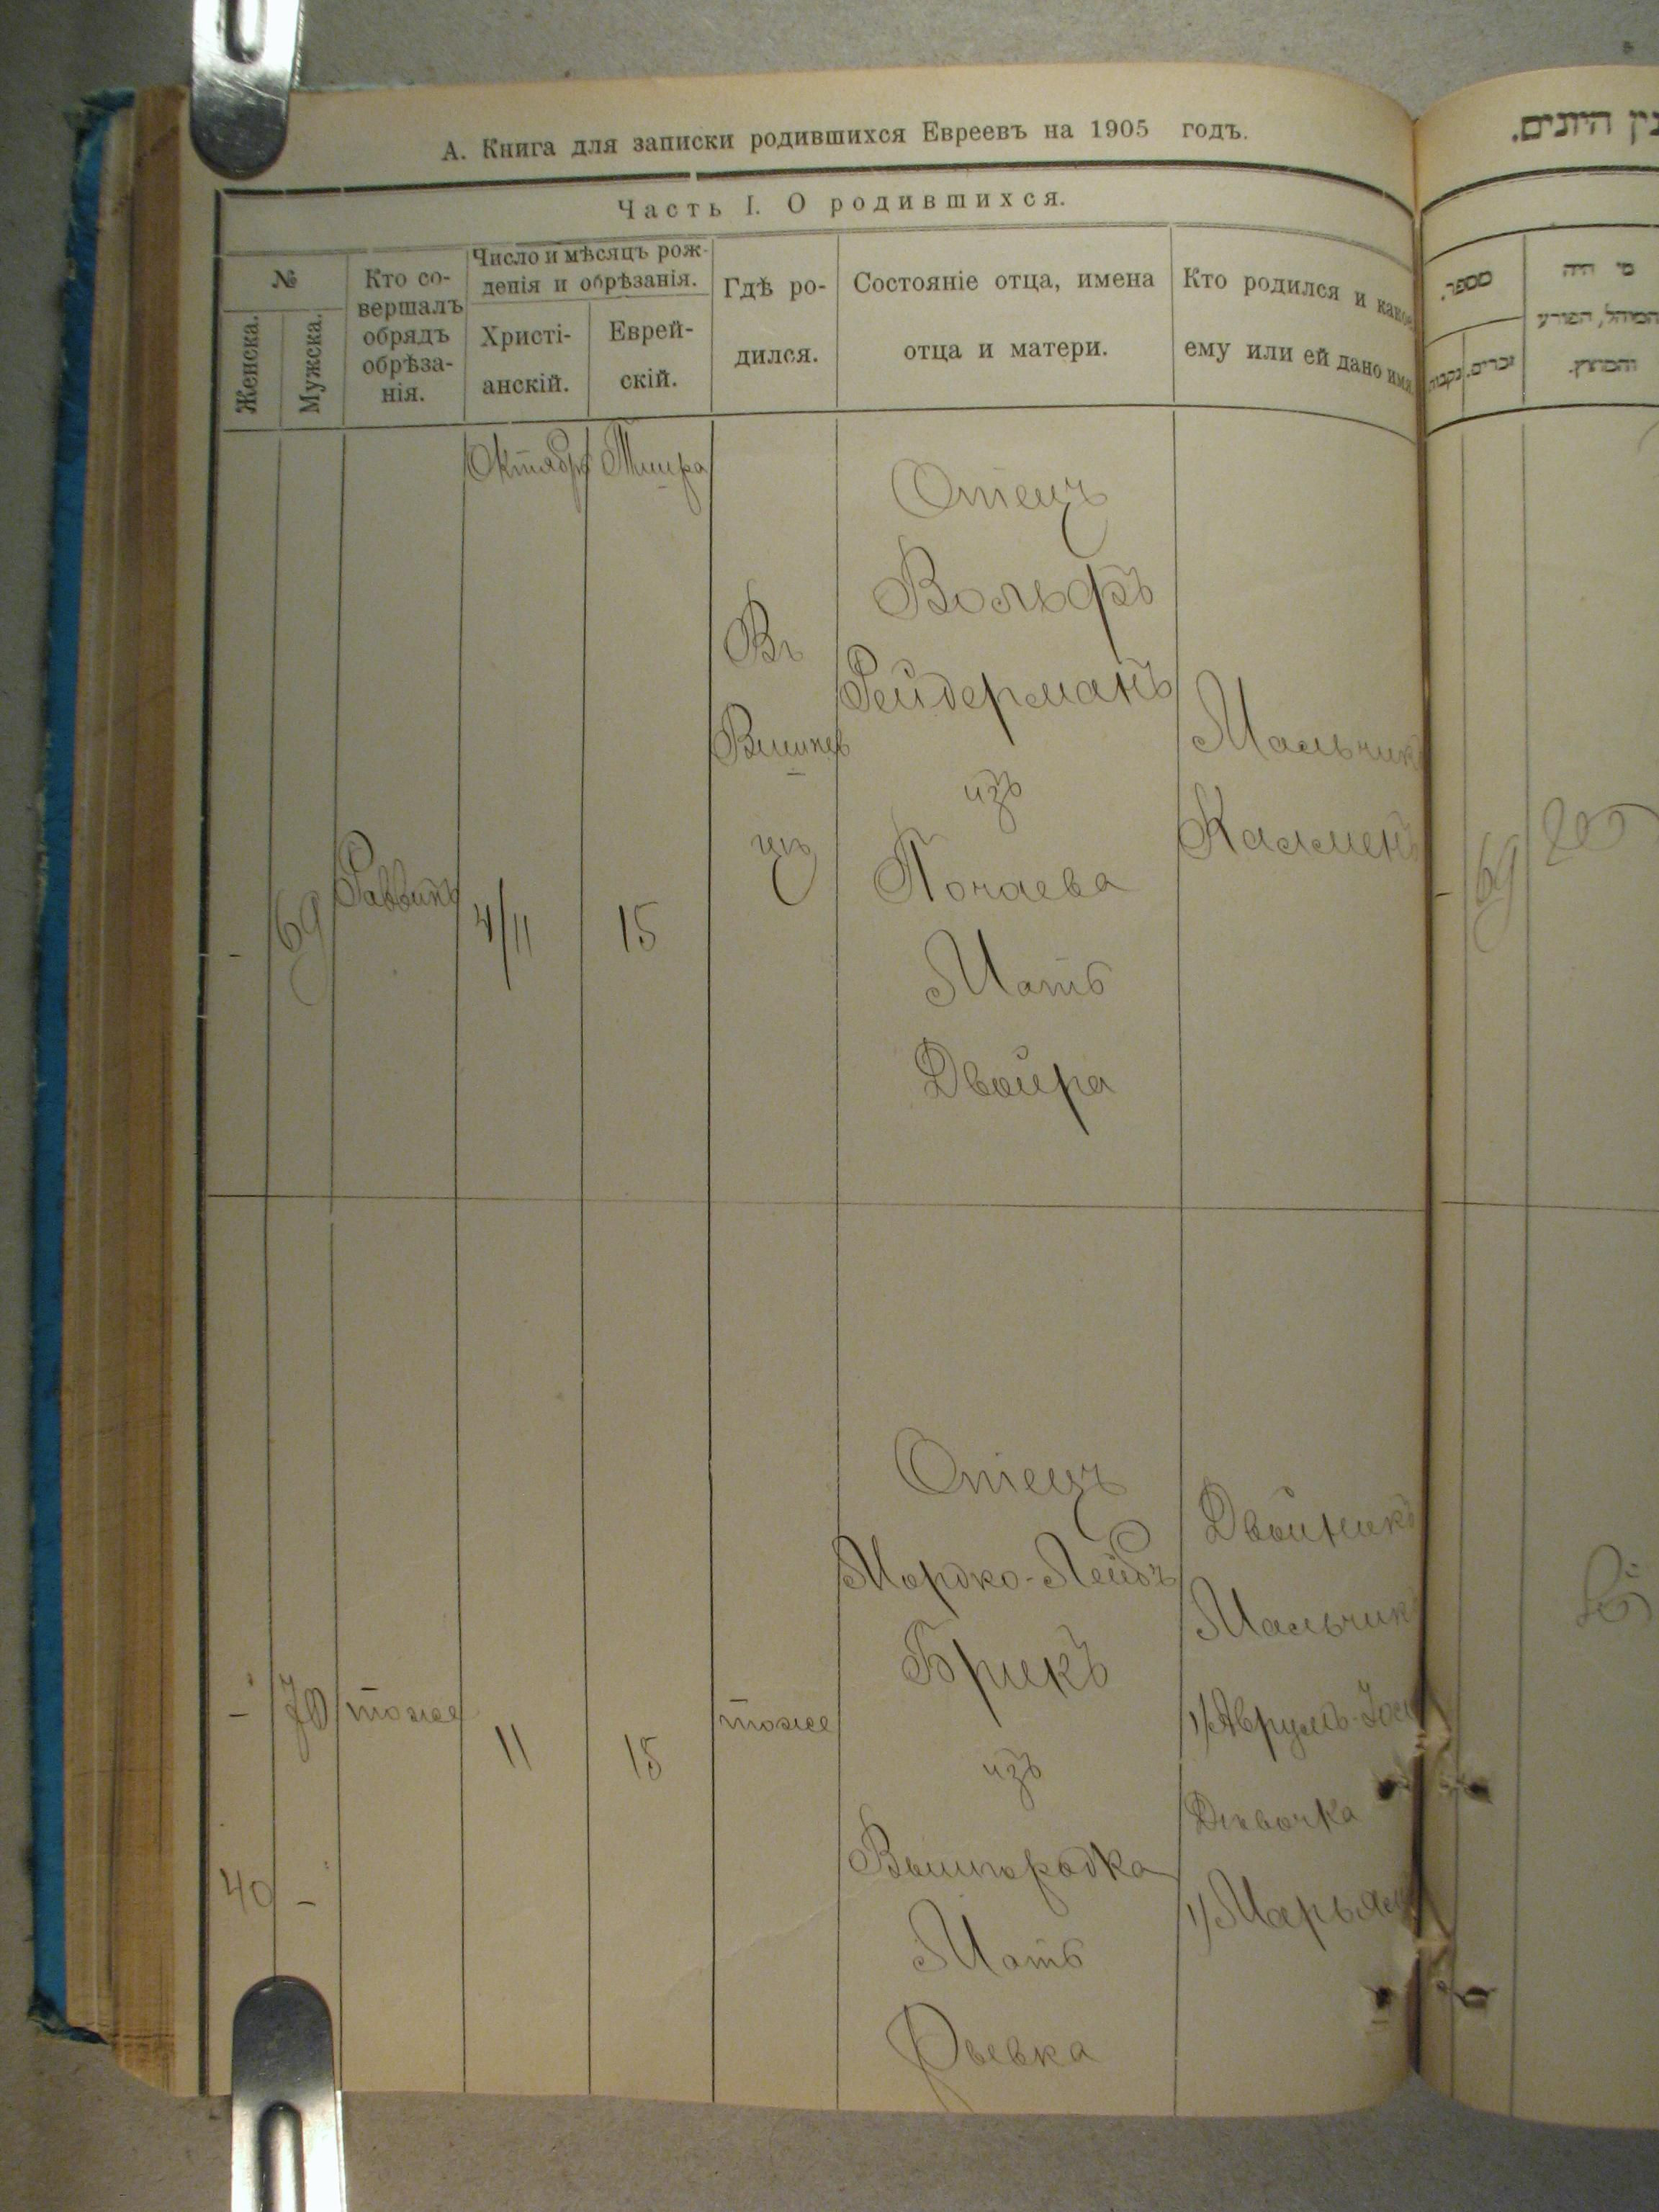 А. Книга для записки родившихся Евреевъ на 1905 годъ.
Часть I. О родившихся.
№
Женска.
Мужска.
Кто со-
вершалъ
обрядъ
обрѣза-
нія.
Число и мѣсяцъ рож-
денія и обрѣзанія.
Христі-
анскій.
Еврей-
скій.
Гдѣ ро-
дился.
Состояніе отца, имена
отца и матери.
Кто родился и какое
ему или ей дано имя.
Октябрь
Тишра
-
69
Раввинъ
4/11
15
Въ
Вишнев
цѣ
Отецъ
Вольфъ
Рейдерманъ
изъ
Почаева
Мать
Двойра
Мальчикъ
Калменъ
-
70
тоже
11
15
тоже
40
-
Отецъ
Мордко-Лейбъ
Брикъ
изъ
Вышгородка
Мать
Рывка
Двойникъ
Мальчикъ
1) Аврумъ-
Дѣвочка
1) Марьям
היונים.
מספר.
זכרים.
נקבות
מי היה
המוהל, הפורע
והמוצץ.
-
69